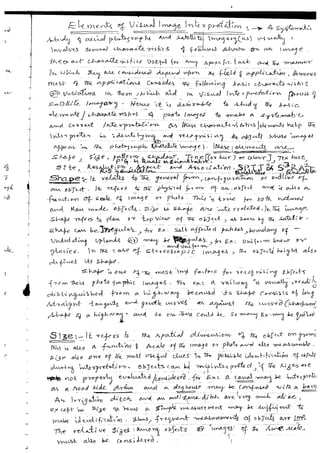 Elements of Visual Image Interpretation : → A Systematic
study of aerial photographs and satellite Imagery(ies) usually,
Involves several characteristics of features shown on an image
the exact characteristics useful for any specific task and the manner
in which they are considered depend upon the field of application, However
most of the applications consider the following basic characteristics
@ Variations in them, which aid in Visual Interpretation of
Satellite Imagery. Hence it is desirable to study the basic
elements / characteristics of photo images to make a systematic
and correct Interpretation as these characteristics/elements help the
interpreter in identifying and recognising the objects whose images
appear in the photograph (Satellite images). These elements are
Shape, Size, pattern, Shadow, Tone (or hue) or colour, Texture,
Site, Association
Shape:- It relates to the general form, configuration or outline of
an object. It refers to the physical form of an object and is also a
function of scale of image or photo. This is true for both natural
and Man made objects. Size or shape are interrelated, in the image.
Shape refers to plan or top view of the object, as seen by the satellite.
Shape can be Irregular, for Ex: Salt affected patches, boundary of
Undulating Uplands @ may be Regular, for Ex: Uniform Snow or
glacier. In the case of stereoscopic images, the objects height also
defines its shape.
Shape is one of the most imp factors for recognising objects
from their photographic images. For ex: a railway is usually, readily
distinguished from a highway because its shape consists of long
straight tangents and gentle curves as against the curved (sharper)
shape of a highway.
Size:- It refers to the spatial dimension of the object on ground
This is also a function of scale of the image or photo and also measurable.
Size also one of the most useful clues to the possible identification of objects
during interpretation. Objects can be misinterpreted, if the sizes are
not properly evaluated/considered. for Ex: a canal may be interpreted
as a Road side drain and a doghouse may be confused with a barn
An Irrigation ditch and an anti-tank ditch are very much alike,
except in size so hence a simple measurement may be sufficient to
make identification. Thus, frequent measurements of objects are
The relative sizes among objects @ images of the same scale,
must also be considered.